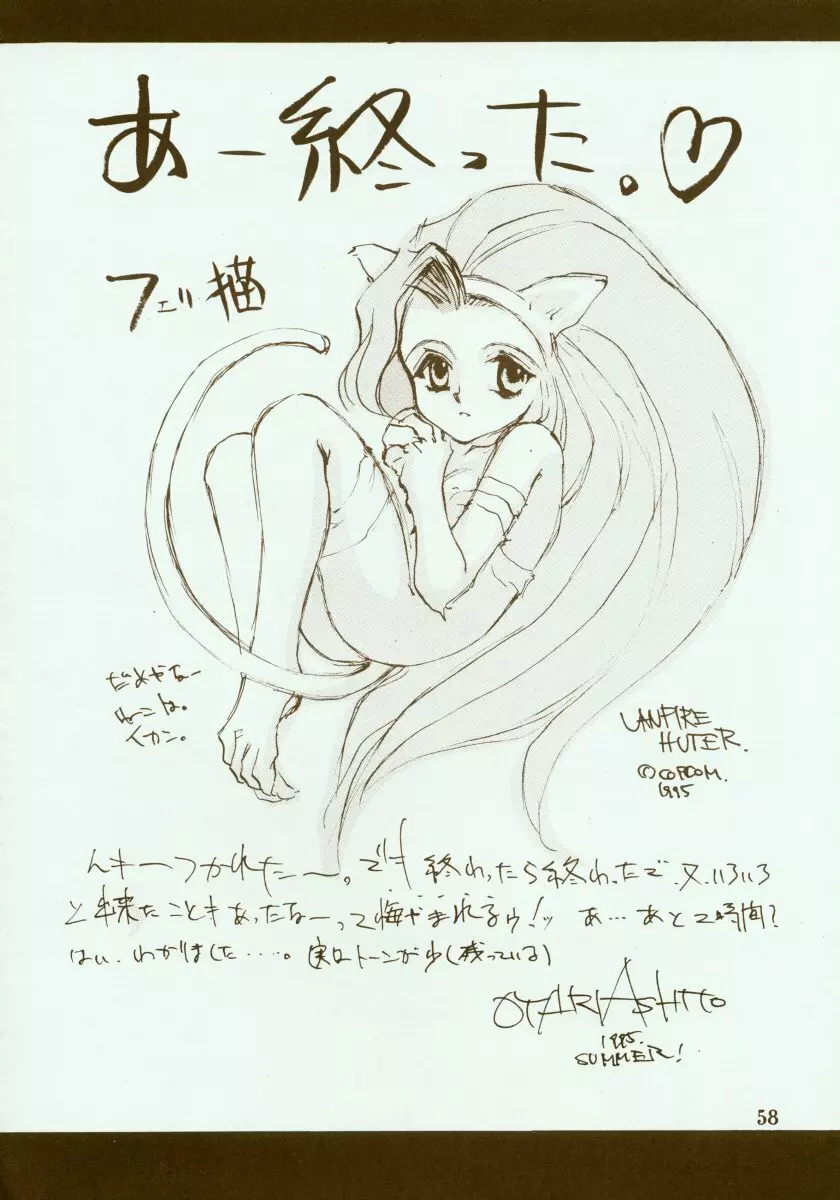 あー終った。♡
フェリ猫
だめやなー
ねこは。
イカン。
VANPIRE
HUTER.
©COPCOM.
1995
んキーつかれたー。でも終わったら終わったで、又、いろいろ
と出来たこともあったなーって悔やまれるゥ!ッ あ…あと2時間?
はい、わかりました……。実はトーンが少(残っている)
OTARIASHITO
1995.
SUMMER!
58